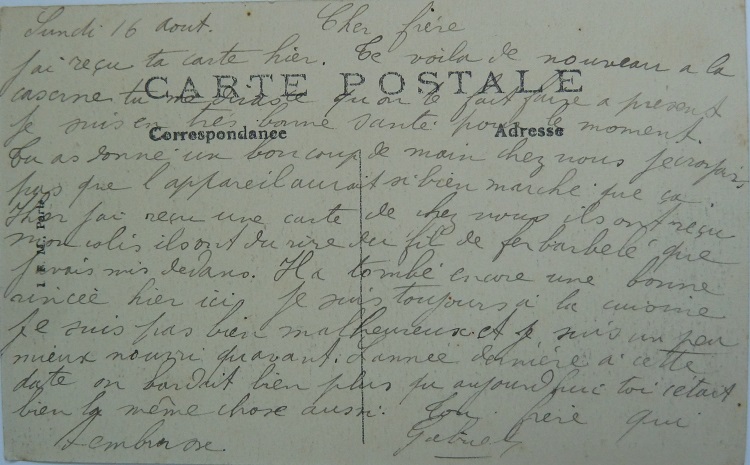 Lundi 16 aout. Cher frére
Jai reçu ta carte hier. Te voila de nouveau a la
CARTE POSTALE
caserne tu me diras ce quon te fait faire a present
Je suis en très bonne santé pour le moment.
Correspondance Adresse
Tu as donné un bon coup de main chez nous je croyais
pas que l'appareil aurait si bien marché que ça.
Hier jai reçu une carte de chez nous ils ont reçu
mon colis ils ont du rire du fil de fer barbelé que
I. P. M. Paris
javais mis dedans. Il a tombé encore une bonne
rincée hier ici je suis toujours a la cuisine
je suis pas bien malheureux et je suis un peu
mieux nourri quavant. Lannée dernière a cette
date on bardait bien plus qu aujourdhui toi cetait
bien la même chose aussi. Ton frère qui
tembrasse. Gabriel